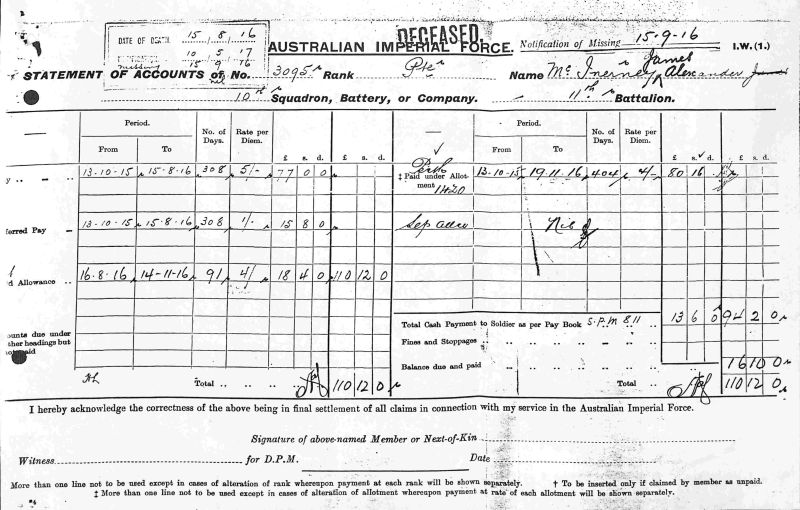 DECEASED.
DATE OF DEATH. 15 8 16
10 5 17
missing 15 9 16
AUSTRALIAN IMPERIAL FORCE.
Notification of Missing 15-9-16
I.W.(1.)
STATEMENT OF ACCOUNTS of No. 3095 Rank Pte Name McInerney James Alexander James
10th Squadron, Battery, or Company. 11th Battalion.
Period. No. of Days. Rate per Diem. £ s. d.
From To
Period. No. of Days. Rate per Diem. £ s. d.
From To
y — 13-10-15 15-8-16 308 5/- 77 0 0
Perth
‡ Paid under Allotment 1420 13-10-15 19.11.16 404 4/- 80 16
ferred Pay — 13-10-15 15-8-16 308 1/- 15 8 0
Sep allce Nil
d Allowance .. 16.8.16 14-11-16 91 4/- 18 4 0 110 12 0
Total Cash Payment to Soldier as per Pay Book S.P.M 811 13 6 0 94 2 0
ounts due under
ther headings but
not paid
Fines and Stoppages
Balance due and paid 16 10 0
Total 110 12 0
Total 110 12 0
I hereby acknowledge the correctness of the above being in final settlement of all claims in connection with my service in the Australian Imperial Force.
Signature of above-named Member or Next-of-Kin
Witness for D.P.M. Date
More than one line not to be used except in cases of alteration of rank whereupon payment at each rank will be shown separately. † To be inserted only if claimed by member as unpaid.
‡ More than one line not to be used except in cases of alteration of allotment whereupon payment at rate of each allotment will be shown separately.